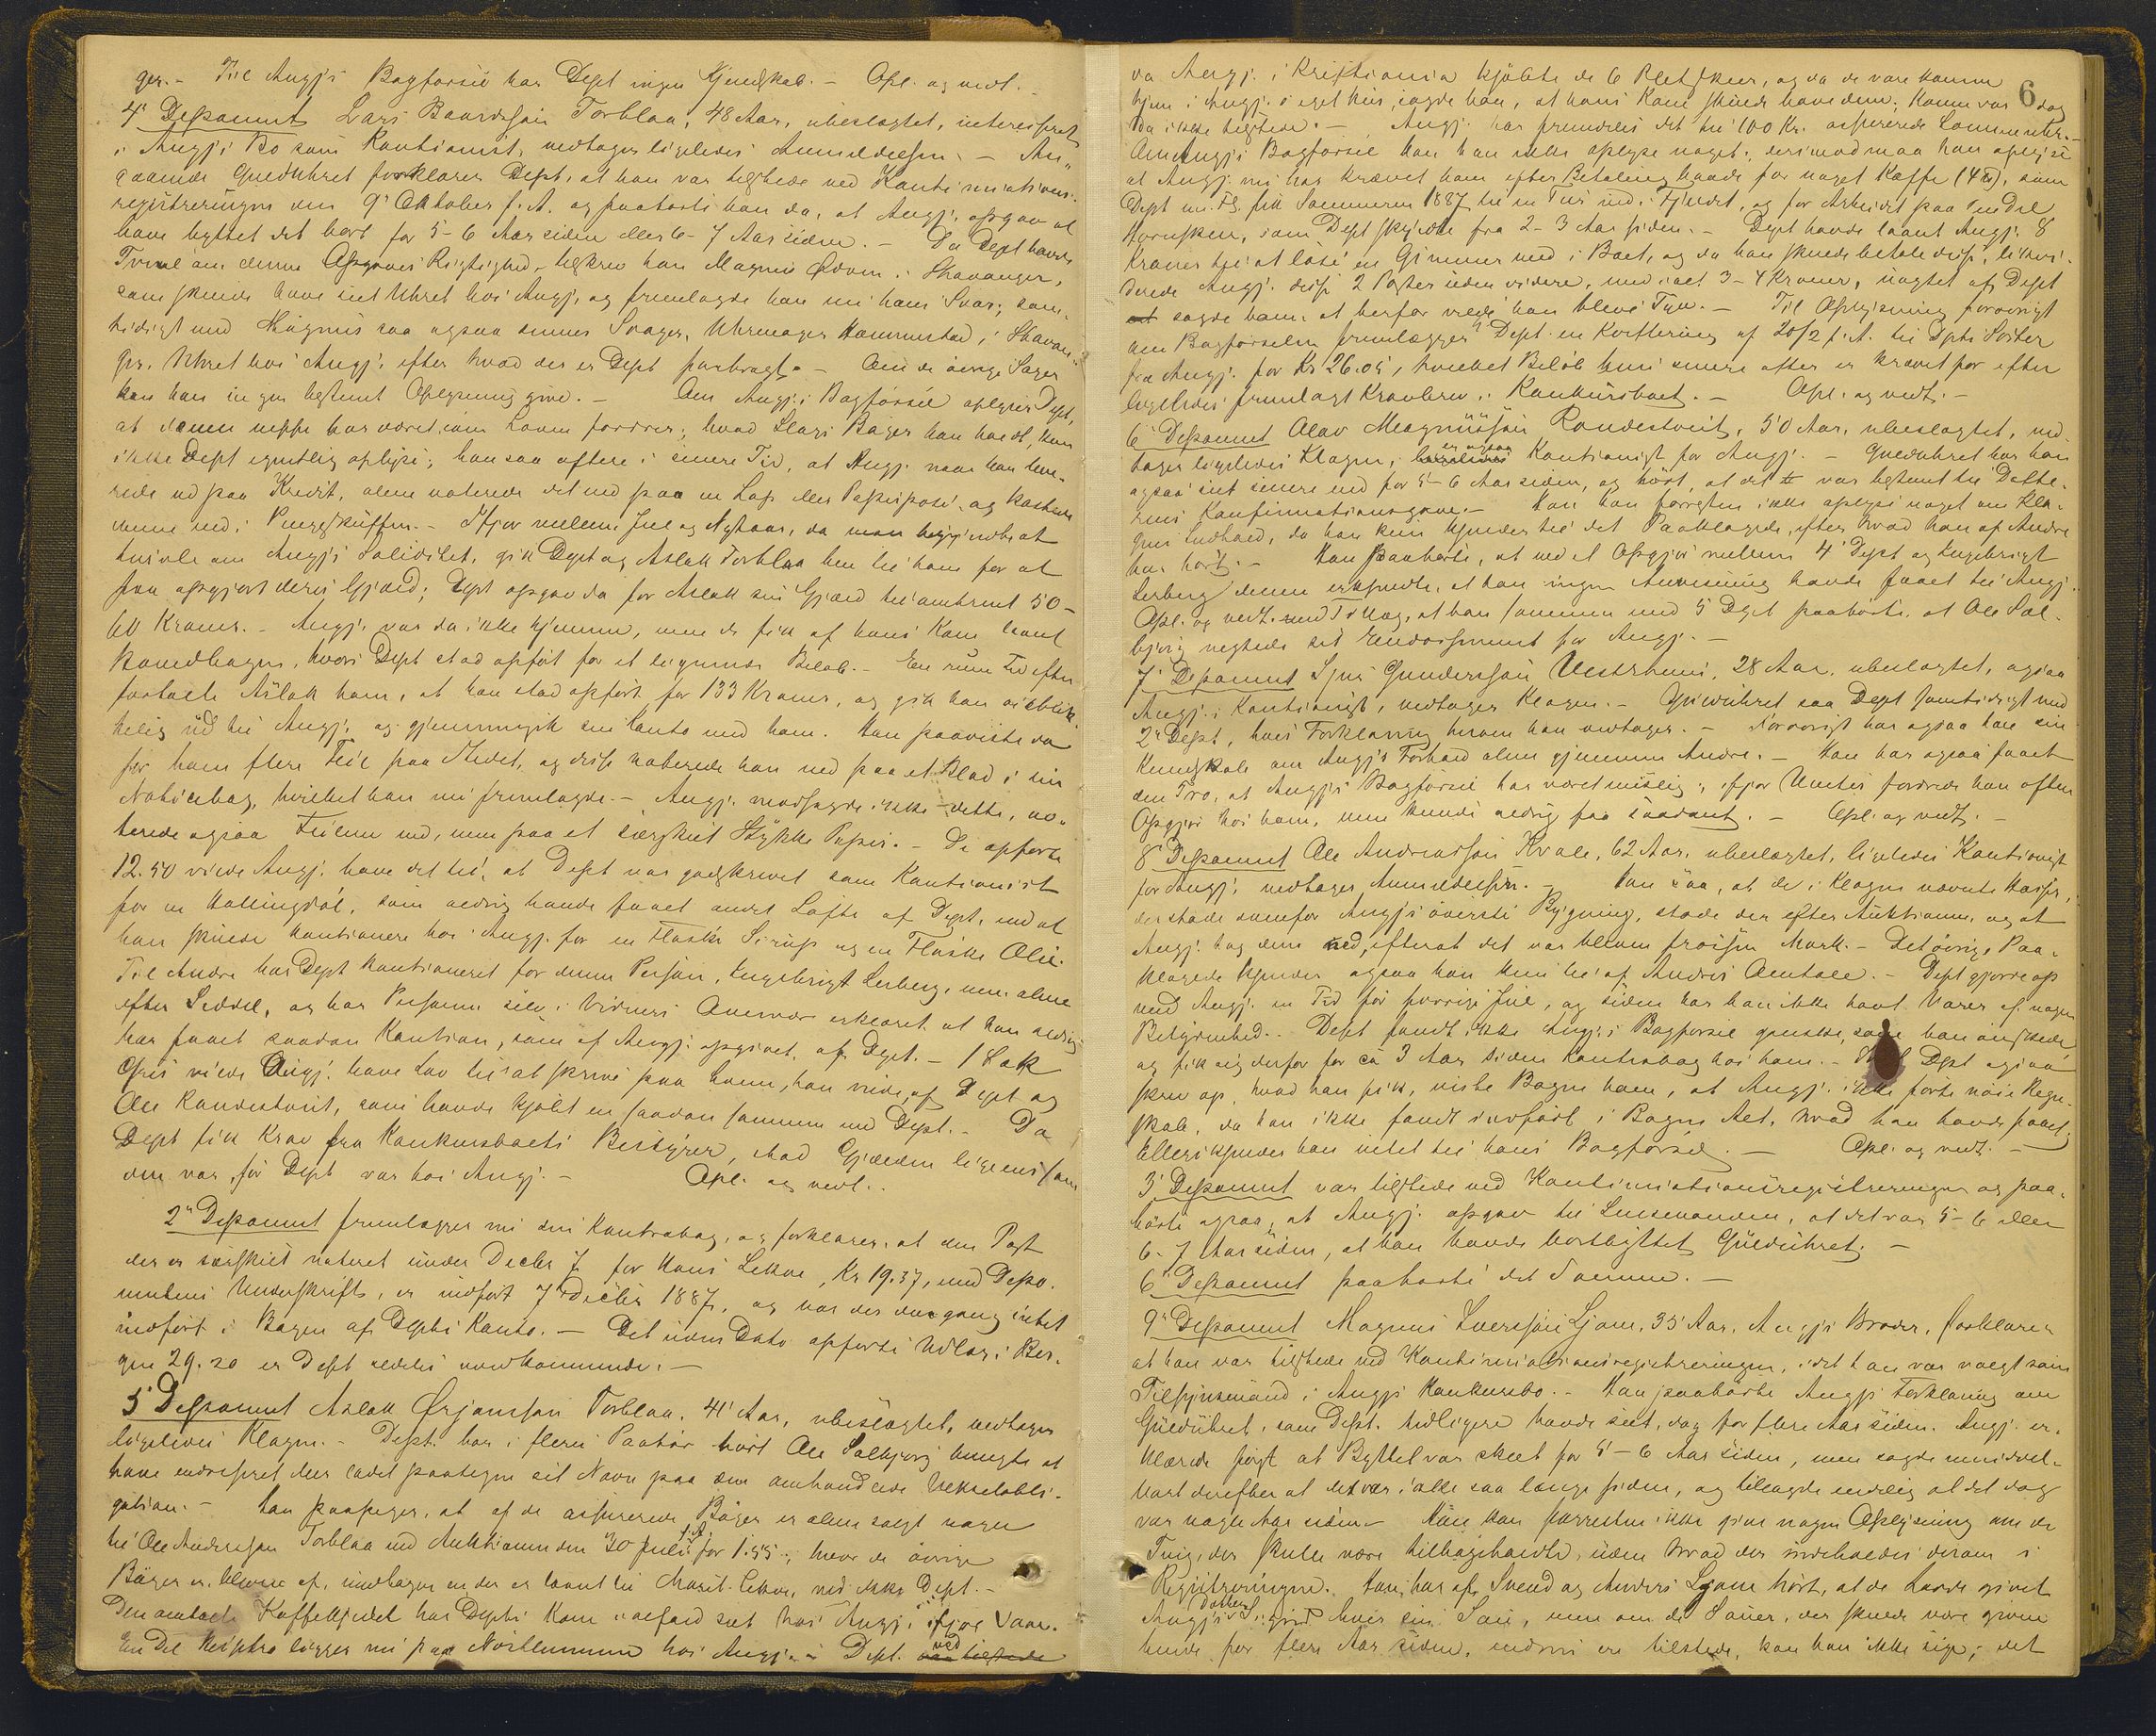 ger. - Til Angj's Bogførsel har Dept ingen Kjendskab. - Opl. og vedt. -
4' Deponent Lars Baardssøn Torblaa, 48 Aar, ubeslægtet, interesseret
i Angj's Bo som Kautionist, vedtager ligeledes Anmeldelsen. - An-
gaaende Gulduhret forklarer Dept, at han var tilstede ved Kontinuations-
registreringen den 9' Oktober f. A. og paahørte han da, at Angj. opgav at
have byttet det bort for 5-6 Aar siden eller 6-7 Aar siden. - Da Dept havde
Tvivl om denne Opgaves Rigtighed, tilskrev han Magnus Ødven i Stavanger,
som skulde have seet Uhret hos Angj, og fremlagde han nu hans Svar; sam-
tidigt med Magnus saa ogsaa dennes Svoger, Uhrmager Hammerstad i Stavan-
ger, Uhret hos Angj. efter hvad der er Dept forebragt. - Om de øvrige Sager
kan han ingen bestemt Oplysning give. - Om Angj's Bogførsel oplyser Dept,
at denne neppe har været som Loven fordrer; hvad Slags Bøger han havdt, kan
ikke Dept egentlig oplyse; han saa oftere i senere Tid, at Angj. naar han leve-
rede ud paa Kredit, alene noterede det ned paa en Lap eller Papirpose, og kastede
denne ned i Pengeskuffen. - Ifjor mellem Jul og Nytaar, da man begyndte at
tvivle om Angj's Soliditet, gik Dept og Aslak Torblaa hen til ham for at
faa opgjort deres Gjæld; Dept opgav da for Aslak sin Gjæld til omtrent 50-
60 Kroner. - Angj. var da ikke hjemme, men de fik af hans Kone laant
Hovedbogen, hvori Dept stod opført for et lignende Beløb. - En rum Tid efter
fortalte Aslak ham, at han stod opført for 133 Kroner, og gik han øieblik-
kelig ud til Angj. og gjennemgik sin Conto med ham. Han paaviste da
for ham flere Feil paa Stedet, og disse noterede han ned paa et Blad i sin
Noticebog, hvilket han nu fremlagde. - Angj. modsagde ikke dette, no-
terede ogsaa Feilene ned, men paa et særskilt Stykke Papir. - De opførte
12.50 vilde Angj. have det til, at Dept var godskrevet som Kautionist
for en Hallingdøl, som aldrig havde faaet andet Løfte af Dept, end at
han skulde kautionere hos Angj. for en Flaske Sirup og en Flaske Olie.
Til Andre har Dept kautioneret for denne Person, Engebrigt Lerberg, men alene
efter Seddel, og har Personen selv i Vidners Overvær erklæret at han aldrig
har faaet saadan Kaution, som af Angj. opgivet, af Dept. - 1 Sæk
Gris vilde Angj. have Lov til at skrive paa ham, han vilde, af Dept og
Ole Rondestveit, som havde kjøbt en saadan sammen med Dept. - Da
Dept fik Krav fra Konkursboets Bestyrer, stod Gjælden ligesaa som
den var, før Dept var hos Angj. - Opl. og vedt. -
2' Deponent fremlægger nu sin Kontrabog, og forklarer, at den Post
der er særskilt noteret under Decbr 7 for Hans Lekve, Kr 19.37, med Depo-
nentens Underskrift, er indført 7de Decbr 1887, og var der dengang intet
indført i Bogen af Depts Konto. - Det uden Dato opførte Udlæg i Ber-
gen 29.20 er Dept aldeles uvedkommende. -
5' Deponent Aslak Ørjanssøn Torblaa, 41 Aar, ubeslægtet, vedtager
ligeledes Klagen. - Dept. har i fleres Paahør hørt Ole Solbjørg benegte at
have endosseret eller ladet paategne sit Navn paa den omhandlede Vexelobli-
gation. - Han paapeger, at af de assurerede Bøger er alene solgt nogen
til Ole Anderssøn Torblaa ved Auktionen den 30 Juli f. A. for 1.55; hvor de øvrige
Bøger er blevne af, undtagen en der er laant til Marit Lekve, ved ikke Dept. -
Den omtalte Kaffekjedel har Depts Kone ialfald seet hos Angj's ifjor Vaar.
En Del Høistra ligger nu paa Nøsthuene hos Angj. - Dept. ved var tilstede
6
da Angj. i Kristiania kjøbte de 6 Pletskeer, og da de vare komne
hjem i Angj's eget hus, sagde han, at hans Kone skulde have dem; Konen var dog
da ikke tilstede. - Angj. har fremdeles det til 100 Kr. assurerede Lommeuhr. -
Om Angj's Bogførsel kan han ikke oplyse noget; derimod maa han oplyse
at Angj. nu har krævet ham efter Betaling baade for noget Kaffe (4 ℔), som
Dept m. Fl. fik Sommeren 1887 til en Tur ind i Fjeldet, og for Arbeidet paa en Del
Hornskeer, som Dept skyldte fra 2-3 Aar siden. - Dept havde laant Angj. 8
Kroner til at løse en Gimmer med i Boet, og da han skulde betale disse, likvi-
derede Angj. disse 2 Poster uden videre, med ialt 3-4 Kroner, uagtet af Dept
sagde ham, at herfor vilde han blive Tyv. - Til Oplysning forøvrigt
om Bogførselen fremlægger Dept en Kvittering af 20/2 f. A. til Depts Søster
fra Angj. for Kr 26.05, hvilket Beløb hun senere atter er krævet for efter
ligeledes fremlagt Kravbrev i Konkursboet. - Opl. og vedt. -
6' Deponent Olav Magnussøn Rondestveit, 50 Aar, ubeslægtet, ved-
tager ligeledes Klagen, er ogsaa Kautionist for Angj. - Gulduhret har han
ogsaa seet senere end for 5-6 Aar siden, og hørt, at det var bestemt til Datte-
rens Konfirmationsgave. - Han kan forresten ikke oplyse noget om Kla-
gens Indhold, da han kun kjender til det Paaklagede efter hvad han af Andre
har hørt. - Han paahørte, at ved et Opgjør mellem 4' Dept og Engebrigt
Lerberg denne erkjendte, at han ingen Anvisning havde faaet til Angj.
Opl. og vedt. med Tillæg, at han sammen med 5 Dept paahørte, at Ole Sol-
bjørg negtede sit Endossement for Angj. -
7' Deponent Sjur Gunderssøn Vestrheim, 28 Aar, ubeslægtet, ogsaa
Angj's Kautionist, vedtager Klagen. - Gulduhret saa Dept samtidigt med
2' Dept, hvis Forklaring herom han vedtager. - Forøvrigt har ogsaa han sin
Kundskab om Angj's Forhold alene gjennem Andre. - Han har ogsaa faaet
den Tro, at Angj's Bogførsel har været mislig; ifjor Vinter fordrede han oftere
Opgjør hos ham, men kunde aldrig faa saadant. - Opl. og vedt. -
8' Deponent Ole Andreassøn Kvale, 62 Aar, ubeslægtet, ligeledes Kautionist
for Angj. vedtager Anmeldelsen. - Han saa, at de i Klagen nævnte Hæsjer,
der stode ovenfor Angj's øverste Bygning, stode der efter Auktionen, og at
Angj. tog dem ned, efterat det var bleven frossen Mark. - Det øvrige Paa-
klagede kjender ogsaa han kun til af Andres Omtale. - Dept gjorde op
med Angj. en Tid før forrige Jul, og siden har han ikke havt Varer af nogen
Betydenhed. - Dept fandt ikke Angj's Bogførsel ganske, som han ønskede
og fik sig derfor for ca 3 Aar siden Kontrabog hos ham. - Dept ogsaa
skrev op, hvad han fik, viste Bogen ham, at Angj. ikke førte nøie Regn-
skab, da han ikke fandt indført i Bogen Alt, hvad han havde faaet;
Ellers kjender han intet til hans Bogførsel. - Opl. og vedt. -
3' Deponent var tilstede ved Kontinuationsregistreringen og paa-
hørte ogsaa, at Angj. opgav til Lensmanden, at det var 5-6 eller
6-7 Aar siden, at han havde bortbyttet Gulduhret; -
6' Deponent paahørte det Samme. -
9' Deponent Magnus Iverssøn Ljone, 35 Aar, Angj's Broder, forklarer
at han var tilstede ved Kontinuationsregistreringen, idet han var valgt som
Tilsynsmand i Angj's Konkursbo. - Han paahørte Angj's Forklaring om
Gulduhret, som Dept. tidligere havde seet, dog for flere Aar siden. Angj. er-
klærede først at Byttet var skeet for 5-6 Aar siden, men sagde umiddel-
bart derefter at det var ikke saa længe siden, og tilsagde endelig at det dog
var nogle Aar siden. - Han kan forresten ikke give nogen Oplysning om de
Ting, der skulle være tilbageholdte, uden hvad der indeholdes derom i
Registreringen. Han har af Svend og Anders Ljone hørt, at de havde givet
Angj's Datter Sigrid hver sin Sau, men om de Sauer, der skulde være givne
hende for flere Aar siden, endnu er tilstede, kan han ikke sige; det